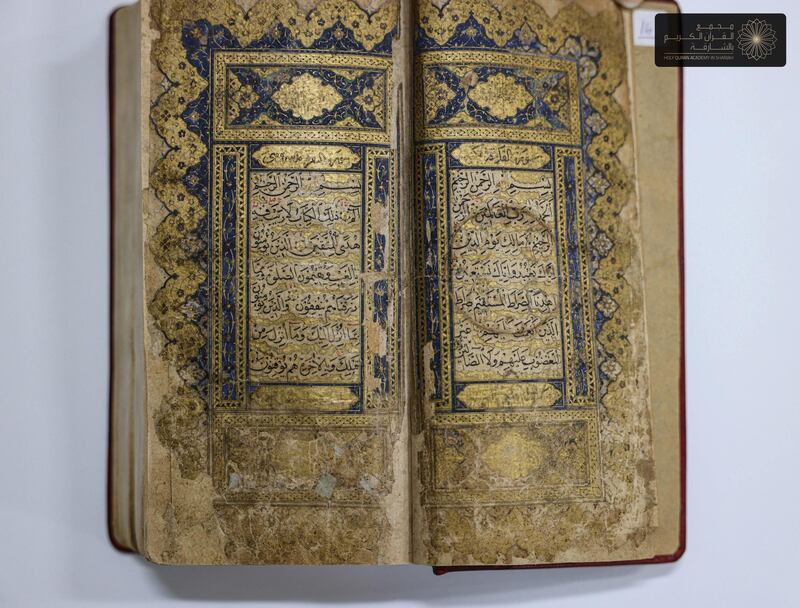 مجمع
القرآن الكريم
بالشارقة
HOLY QURAN ACADEMY IN SHARJAH
بسم الله الرحمن الرحيم
الحمد لله رب العالمين الرحمن
الرحيم مالك يوم الدين
اياك نعبد واياك نستعين
اهدنا الصراط المستقيم صراط
الذين انعمت عليهم غير
المغضوب عليهم ولا الضالين
بسم الله الرحمن الرحيم
الم ذلك الكتاب لا ريب فيه
هدى للمتقين الذين يؤمنون
بالغيب ويقيمون الصلوة ومما
رزقناهم ينفقون والذين يؤمنون
بما انزل اليك وما انزل من
قبلك وبالاخرة هم يوقنون